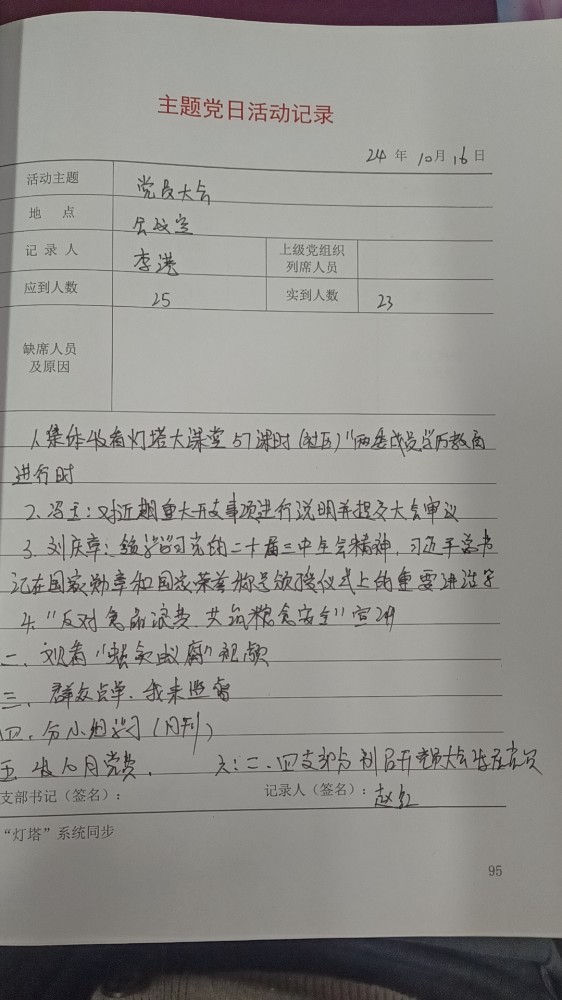 主题党日活动记录
24 年 10 月 16 日
活动主题 党员大会
地 点 会议室
记 录 人 李港 上级党组织
列席人员
应到人数 25 实到人数 23
缺席人员
及原因
1、集体收看灯塔大课堂 57课时(社区)"两委成员学历教育
进行时
2、冯主:对近期重大开支事项进行说明并提交大会审议
3、刘庆章:领学学习党的二十届三中全会精神,习近平总书
记在国家勋章和国家荣誉称号颁授仪式上的重要讲话
4、"反对食品浪费 共筑粮食安全"宣
二、观看"蝇贪蚁腐"视频
三、群众点单、我来
四、分小组学习(月刊)
五 收10月党费、 六:二、四支部 别召开党员大会
支部书记(签名): 记录人(签名):赵红
"灯塔"系统同步
95